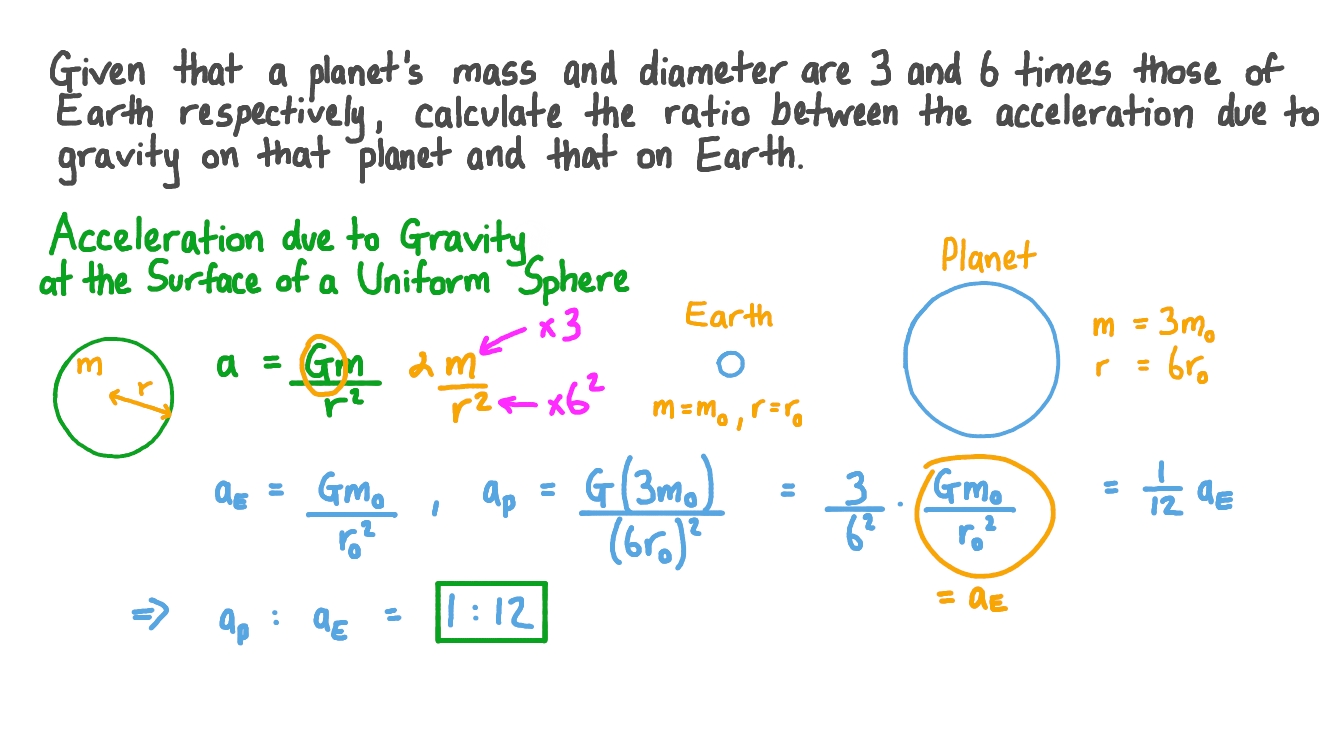 Given that a planet's mass and diameter are 3 and 6 times those of
Earth respectively, calculate the ratio between the acceleration due to
gravity on that planet and that on Earth.
Acceleration due to Gravity
at the Surface of a Uniform Sphere
Planet
Earth
m r
a = Gm/r² α m/r² ×3 ×6²
m=m₀, r=r₀
m = 3m₀
r = 6r₀
a_E = Gm₀/r₀², a_p = G(3m₀)/(6r₀)² = 3/6² · Gm₀/r₀² = 1/12 a_E
= a_E
⇒ a_p : a_E = 1 : 12